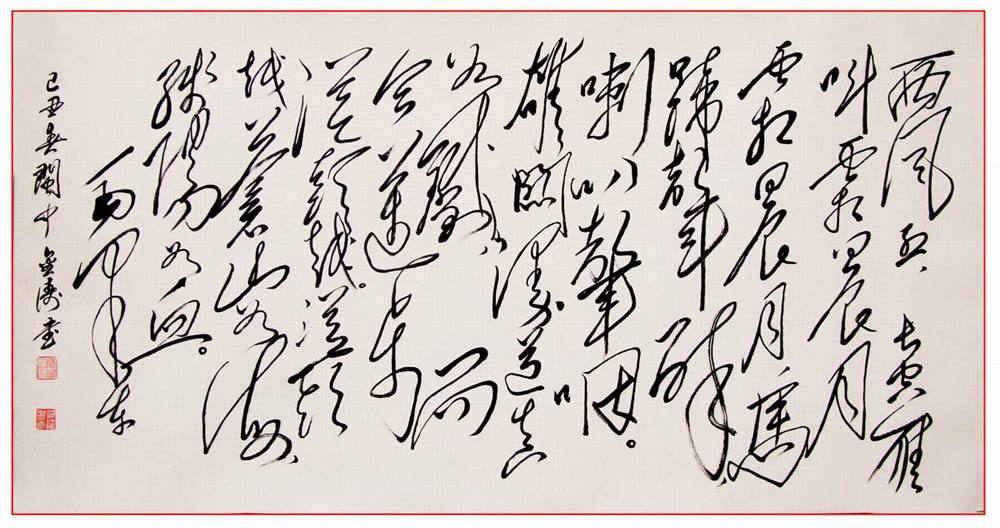 西风烈，長空雁
叫霜晨月
霜晨月馬
蹄聲碎
喇叭聲咽。
雄關漫道真
如鐵而
今迈步
從頭越。從頭
越，蒼山如海，
殘陽如血。
毛澤東
己丑春閬中金涛書